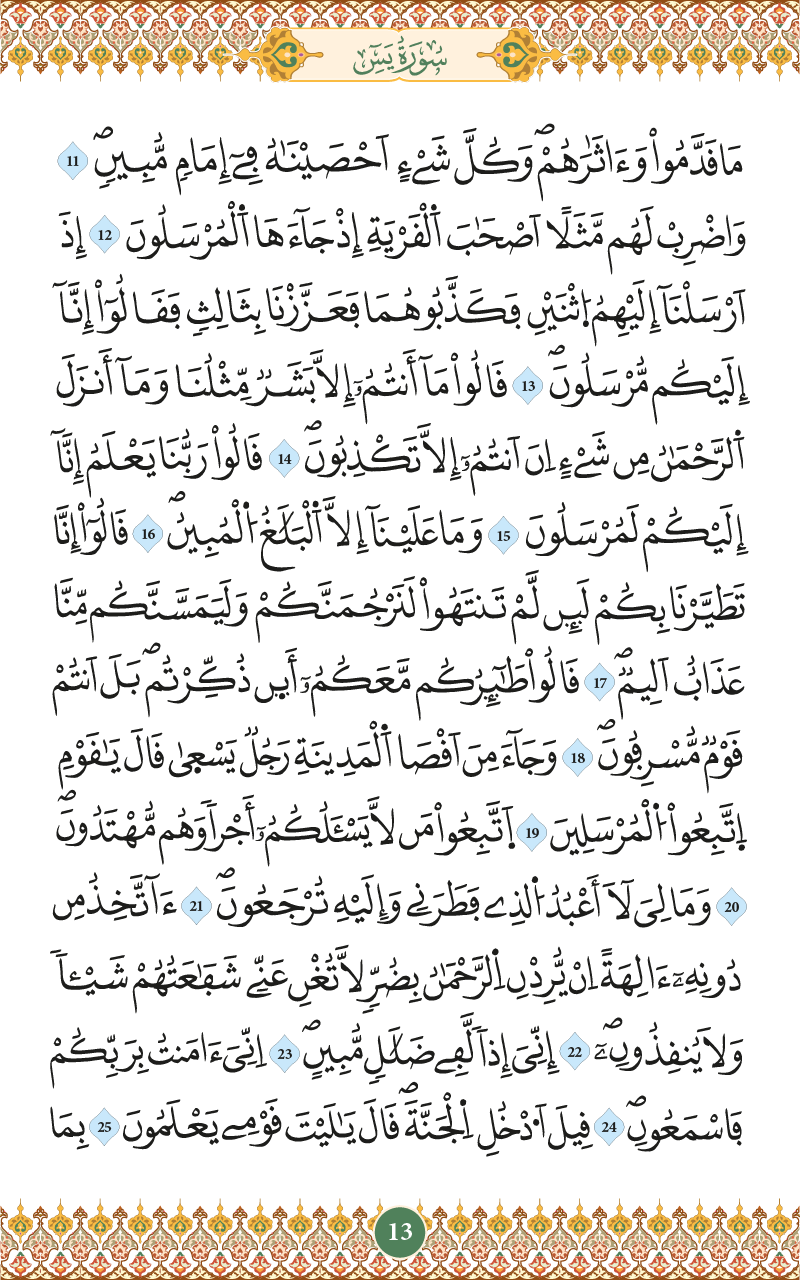 سُورَةُ يَسٓ
مَا قَدَّمُواْ وَءَاثَٰرَهُمْۖ وَكُلَّ شَےْءٍ اَحْصَيْنَٰهُ فِےٓ إِمَامٖ مُّبِينٖۖ 11
وَاضْرِبْ لَهُم مَّثَلًا اَصْحَٰبَ اَ۬لْقَرْيَةِ إِذْ جَآءَهَا اَ۬لْمُرْسَلُونَ 12 إِذَ
اَرْسَلْنَآ إِلَيْهِمُ اُ۪ثْنَيْنِ فَكَذَّبُوهُمَا فَعَزَّزْنَا بِثَالِثٖ فَقَالُوٓاْ إِنَّآ
إِلَيْكُم مُّرْسَلُونَۖ 13 قَالُواْ مَآ أَنتُمُۥٓ إِلَّا بَشَرٞ مِّثْلُنَا وَمَآ أَنزَلَ
اَ۬لرَّحْمَٰنُ مِن شَےْءٍ اِنَ اَنتُمُۥٓ إِلَّا تَكْذِبُونَۖ 14 قَالُواْ رَبُّنَا يَعْلَمُ إِنَّآ
إِلَيْكُمْ لَمُرْسَلُونَ 15 وَمَا عَلَيْنَآ إِلَّا اَ۬لْبَلَٰغُ اُ۬لْمُبِينُۖ 16 قَالُوٓاْ إِنَّا
تَطَيَّرْنَا بِكُمْ لَئِن لَّمْ تَنتَهُواْ لَنَرْجُمَنَّكُمْ وَلَيَمَسَّنَّكُم مِّنَّا
عَذَابٌ اَلِيمٞۖ 17 قَالُواْ طَٰٓئِرُكُم مَّعَكُمُۥٓ أَئِن ذُكِّرْتُمۖ بَلَ اَنتُمْ
قَوْمٞ مُّسْرِفُونَۖ 18 وَجَآءَ مِنَ اَقْصَا اَ۬لْمَدِينَةِ رَجُلٞ يَسْعَىٰ قَالَ يَٰقَوْمِ
اِ۪تَّبِعُواْ اُ۬لْمُرْسَلِينَ 19 اَ۪تَّبِعُواْ مَن لَّا يَسْـَٔلُكُمُۥٓ أَجْراٗ وَهُم مُّهْتَدُونَۖ
20 وَمَالِيَ لَآ أَعْبُدُ اُ۬لذِے فَطَرَنِے وَإِلَيْهِ تُرْجَعُونَۖ 21 ءَآتَّخِذُ مِن
دُونِهِۦٓ ءَالِهَةً اِنْ يُّرِدْنِ اِ۬لرَّحْمَٰنُ بِضُرّٖ لَّا تُغْنِ عَنِّے شَفَٰعَتُهُمْ شَيْـٔاٗ
وَلَا يُنقِذُونِۦٓۖ 22 إِنِّيَ إِذاٗ لَّفِے ضَلَٰلٖ مُّبِينٍۖ 23 اِنِّيَ ءَامَنتُ بِرَبِّكُمْ
فَاسْمَعُونِۖ 24 قِيلَ اَ۟دْخُلِ اِ۬لْجَنَّةَۖ قَالَ يَٰلَيْتَ قَوْمِے يَعْلَمُونَ 25 بِمَا
13